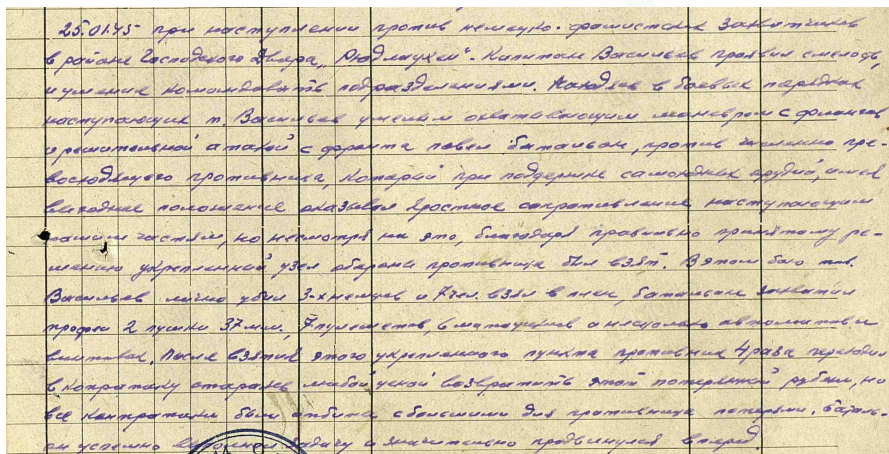 25.01.45 при наступлении против немецко-фашистских захватчиков
в районе Господского Двора „Людлаукен“. Капитан Васильев проявил смелость
и умение командовать подразделениями. Находясь в боевых порядках
наступающих т. Васильев умелым охватывающим маневром с флангов
и решительной атакой с фронта повел батальон, против численно пре-
восходящего противника, который при поддержке самоходных орудий, имея
выгодное положение оказывал яростное сопротивление наступающим
нашим частям, но несмотря на это, благодаря правильно принятому ре-
шению укрепленный узел обороны противника был взят. В этом бою тов.
Васильев лично убил 3-х немцев и 7 чел. взял в плен, батальон захватил
трофеи 2 пушки 37 мм., 7 пулеметов, 6 мотоциклов и несколько автоматов и
винтовок. После взятия этого укрепленного пункта противник 4 раза переходил
в контратаку стараясь любой ценой возвратить этот потерянный рубеж, но
все контратаки были отбиты с большими для противника потерями. Баталь-
он успешно выполнил задачу и значительно продвинулся вперед.